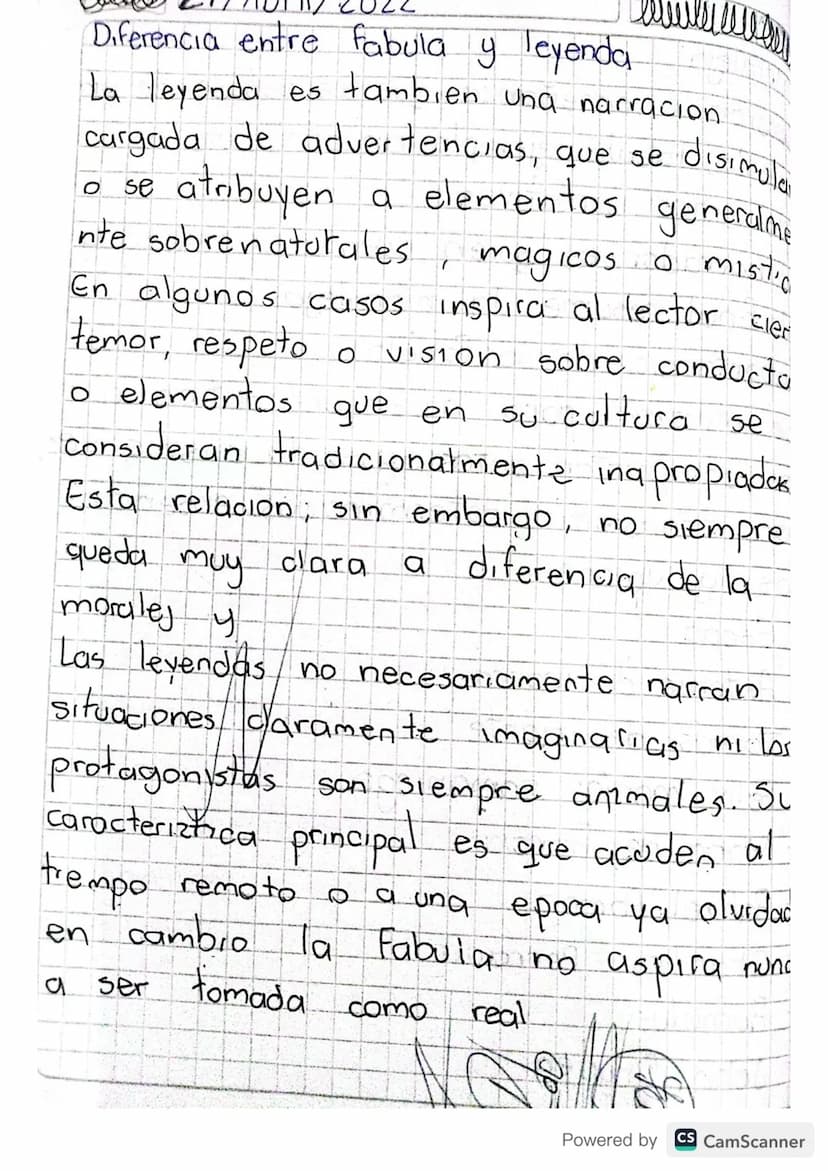 2022
Diferencia entre fabula y leyenda
La leyenda es tambien una narracion
cargada de advertencias, que se disimula
o se atribuyen a elementos generalme
nte sobrenaturales, magicos o mistic
En algunos casos inspira al lector cier
temor, respeto o vision sobre conducta
o elementos que en su cultura se
consideran tradicionalmente inapropiadas
Esta relacion; sin embargo, no siempre
queda muy clara a diferencia de la
morales y
Las leyendas no necesariamente narran
situaciones claramente imaginarias ni los
protagonistas son siempre animales. Su
caracteriztica principal es que acuden al
tiempo remoto o a una epoca ya olvidad
en cambio la Fabula no aspira nunc
a ser tomada como real
Powered by CS CamScanner